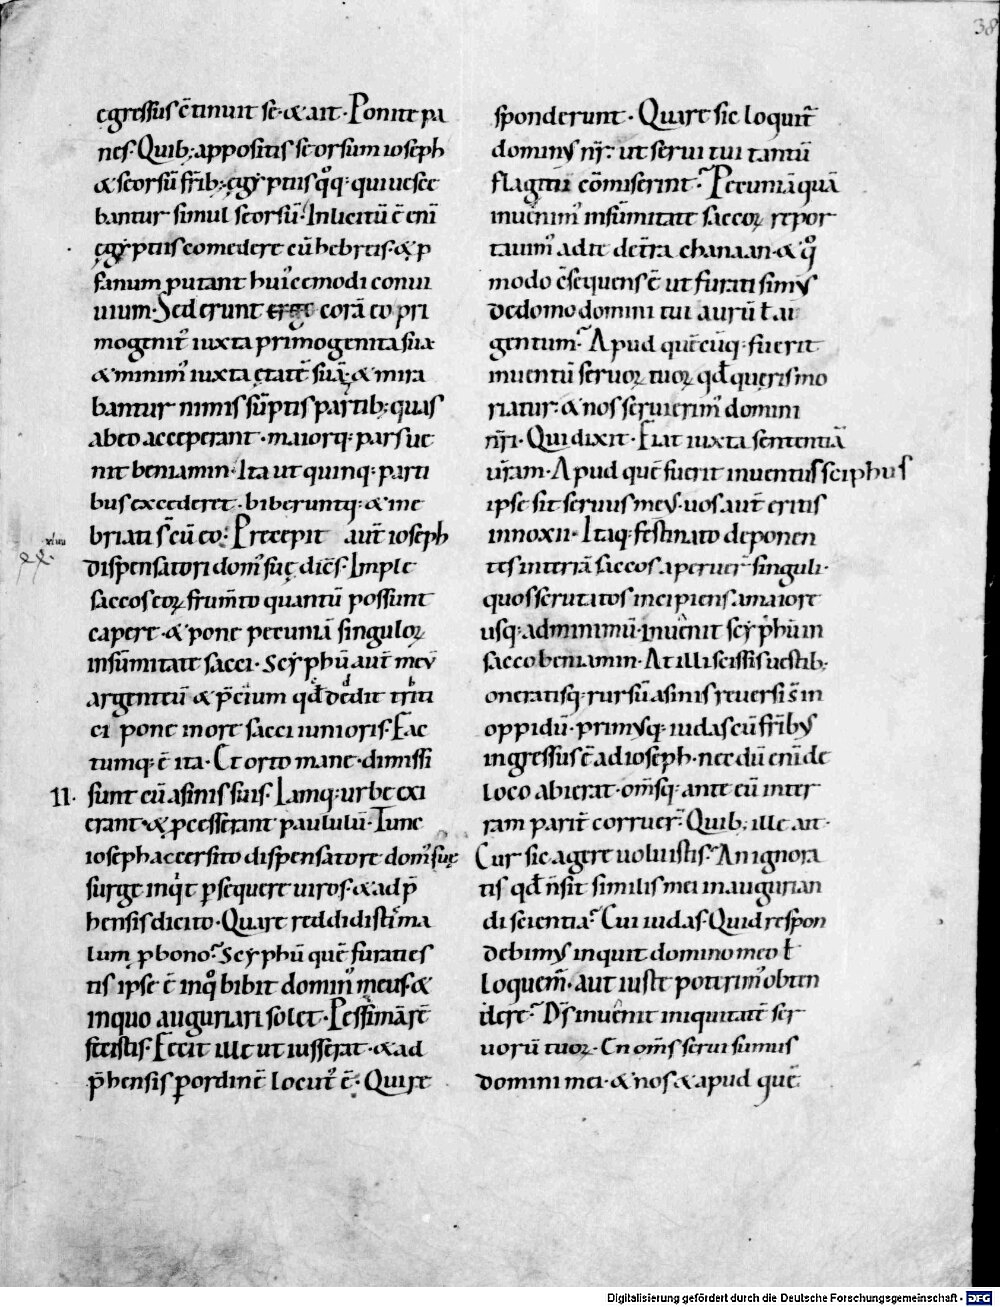 38
ęgressus c̄tinuit sē· & ait· Ponite pa
nes· Quib; appositis seorsum ioseph
& seorsū frīb; ęgyptiis qͦq; qui uesce
bantur simul seorsū· Inlicitū ē enī
ęgyptiis comedere cū hebreis· & ꝓ
fanum putant huiꝰcemodi conui
uium· Sederunt ergo corā eo pri
mogenitꝰ iuxta primogenita sua
& minimꝰ iuxta ętatē suā; & mira
bantur nimis sūptis partib; quas
ab eo acceperant· maiorq; pars ue
nit beniamin· Ita ut quinq; parti
bus excederet· biberuntq; & ine
briati sꝰ cū eo; Precepit aut̄ ioseph
xliiii
dispensatori domꝰ suę dicēs· Imple
saccos eoꝝ frum̄to quantū possunt
capere· & pone pecuniā singuloꝝ
in sūmitate sacci· Scyphū aut̄ meū
argenteū & p̄cium qd̄ dedit tritі
ci pone in ore sacci iunioris· Fac
tumq; ē ita· Et orto mane· dimissi
11· sunt cū asinis suis· Iamq; urbe exi
erant· & ꝓcesserant paululū· Tunc
ioseph accersito dispensatore domꝰ suę
surge inqͥt ꝑsequere uiros· & adp̄
hensis dicito· Quare reddidistis ma
lum ꝓ bono? Scyphū quē furati es
tis ipse ē in qͦ bibit dominꝰ meus· &
in quo augurari solet· Pessimā rē
fecistis· Fecit ille ut iusserat· & ad
p̄hensis ꝑ ordinē locutꝰ ē· Qui re
sponderunt· Quare sic loquit̄
dominus nr̄· ut serui tui tantū
flagitii cōmiserint? Pecuniā quā
inuenimꝰ in sūmitate saccoꝝ repor
tauimꝰ ad te de t̄ra chanaan· & qͦ
modo c̄sequens ē ut furati simus
de domo domini tui aurū ł ar
gentum? Apud quēcūq; fuerit
inuentū seruoꝝ tuoꝝ qd̄ queris mo
riatur· & nos seruierimꝰ domini
nr̄i· Qui dixit· Fiat iuxta sententiā
ur̄am· Apud quē fuerit inuentus sciphus
ipse sit seruus meus· uos aut̄ eritis
innoxii· Itaq; festinato deponen
tes in terrā saccos aperuer̄ singuli·
quos scrutatos incipiens a maiore
usq; ad minimū· inuenit scyphū in
sacco beniamin· At illi scissis uestib;
oneratisq; rursū asinis reuersi sꝰ in
oppidū· primusq; iudas cū frībus
ingressus ē ad ioseph· necdū enī de
loco abierat· om̄sq; ante eū in ter
ram parit̄ corruer̄· Quib; ille ait·
Cur sic agere uoluistis? An ignora
tis qd̄ n̄ sit similis mei in augurian
di scientia? Cui iudas· Quid respon
debimus inquit domino meo ł
loquem̄· aut iuste poterimꝰ obten
dere? Ds̄ inuenit iniquitatē ser
uorū tuoꝝ· En om̄s serui sumus
domini mei· & nos & apud quē
Digitalisierung gefördert durch die Deutsche Forschungsgemeinschaft - DFG